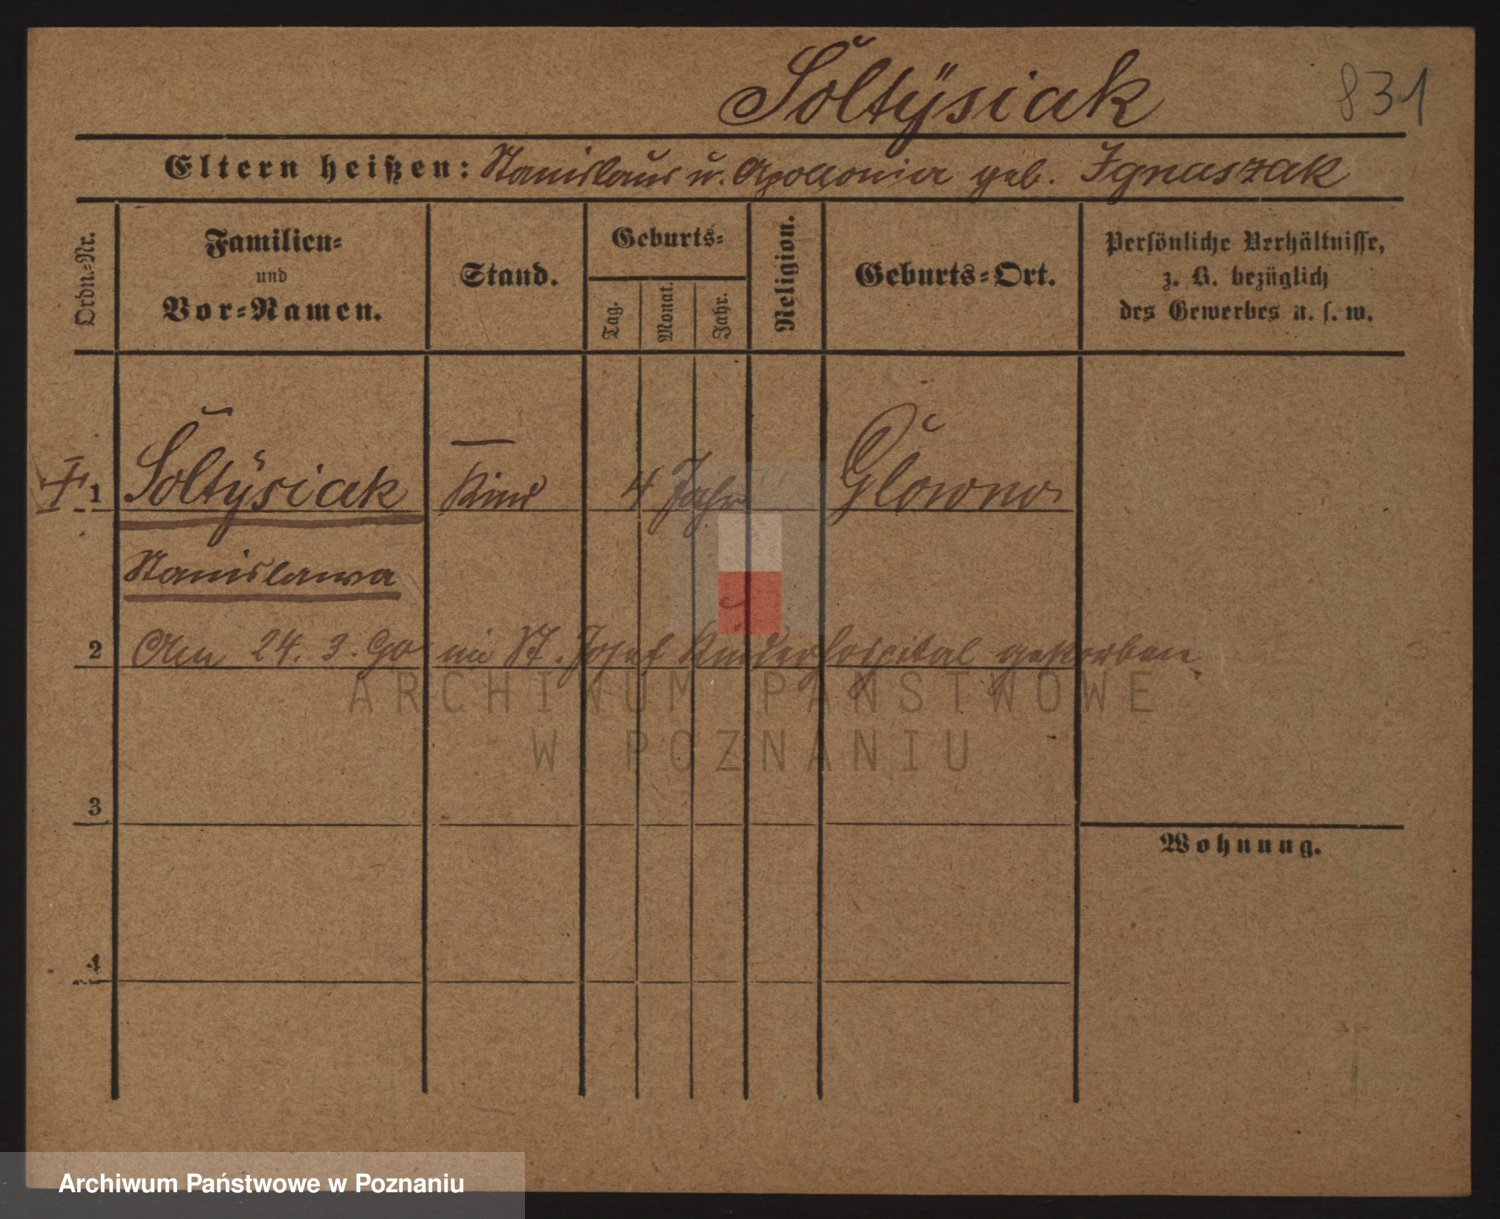 Šoltÿsiak
831
Eltern heißen: Stanislaus u. Apollonia geb. Ignaszak
Ordn.-Nr.
Familien- und Vor-Namen.
Stand.
Geburts-
Tag.
Monat.
Jahr.
Religion.
Geburts-Ort.
Persönliche Verhältnisse,
z. B. bezüglich
des Gewerbes u. s. w.
1 Šoltÿsiak Kind 4 Jahr Glowno
Stanislawa
2 Am 24. 3. 90 im St. Josef Kinderhospital gestorben.
ARCHIWUM PAŃSTWOWE
W POZNANIU
3
Wohnung.
4
Archiwum Państwowe w Poznaniu